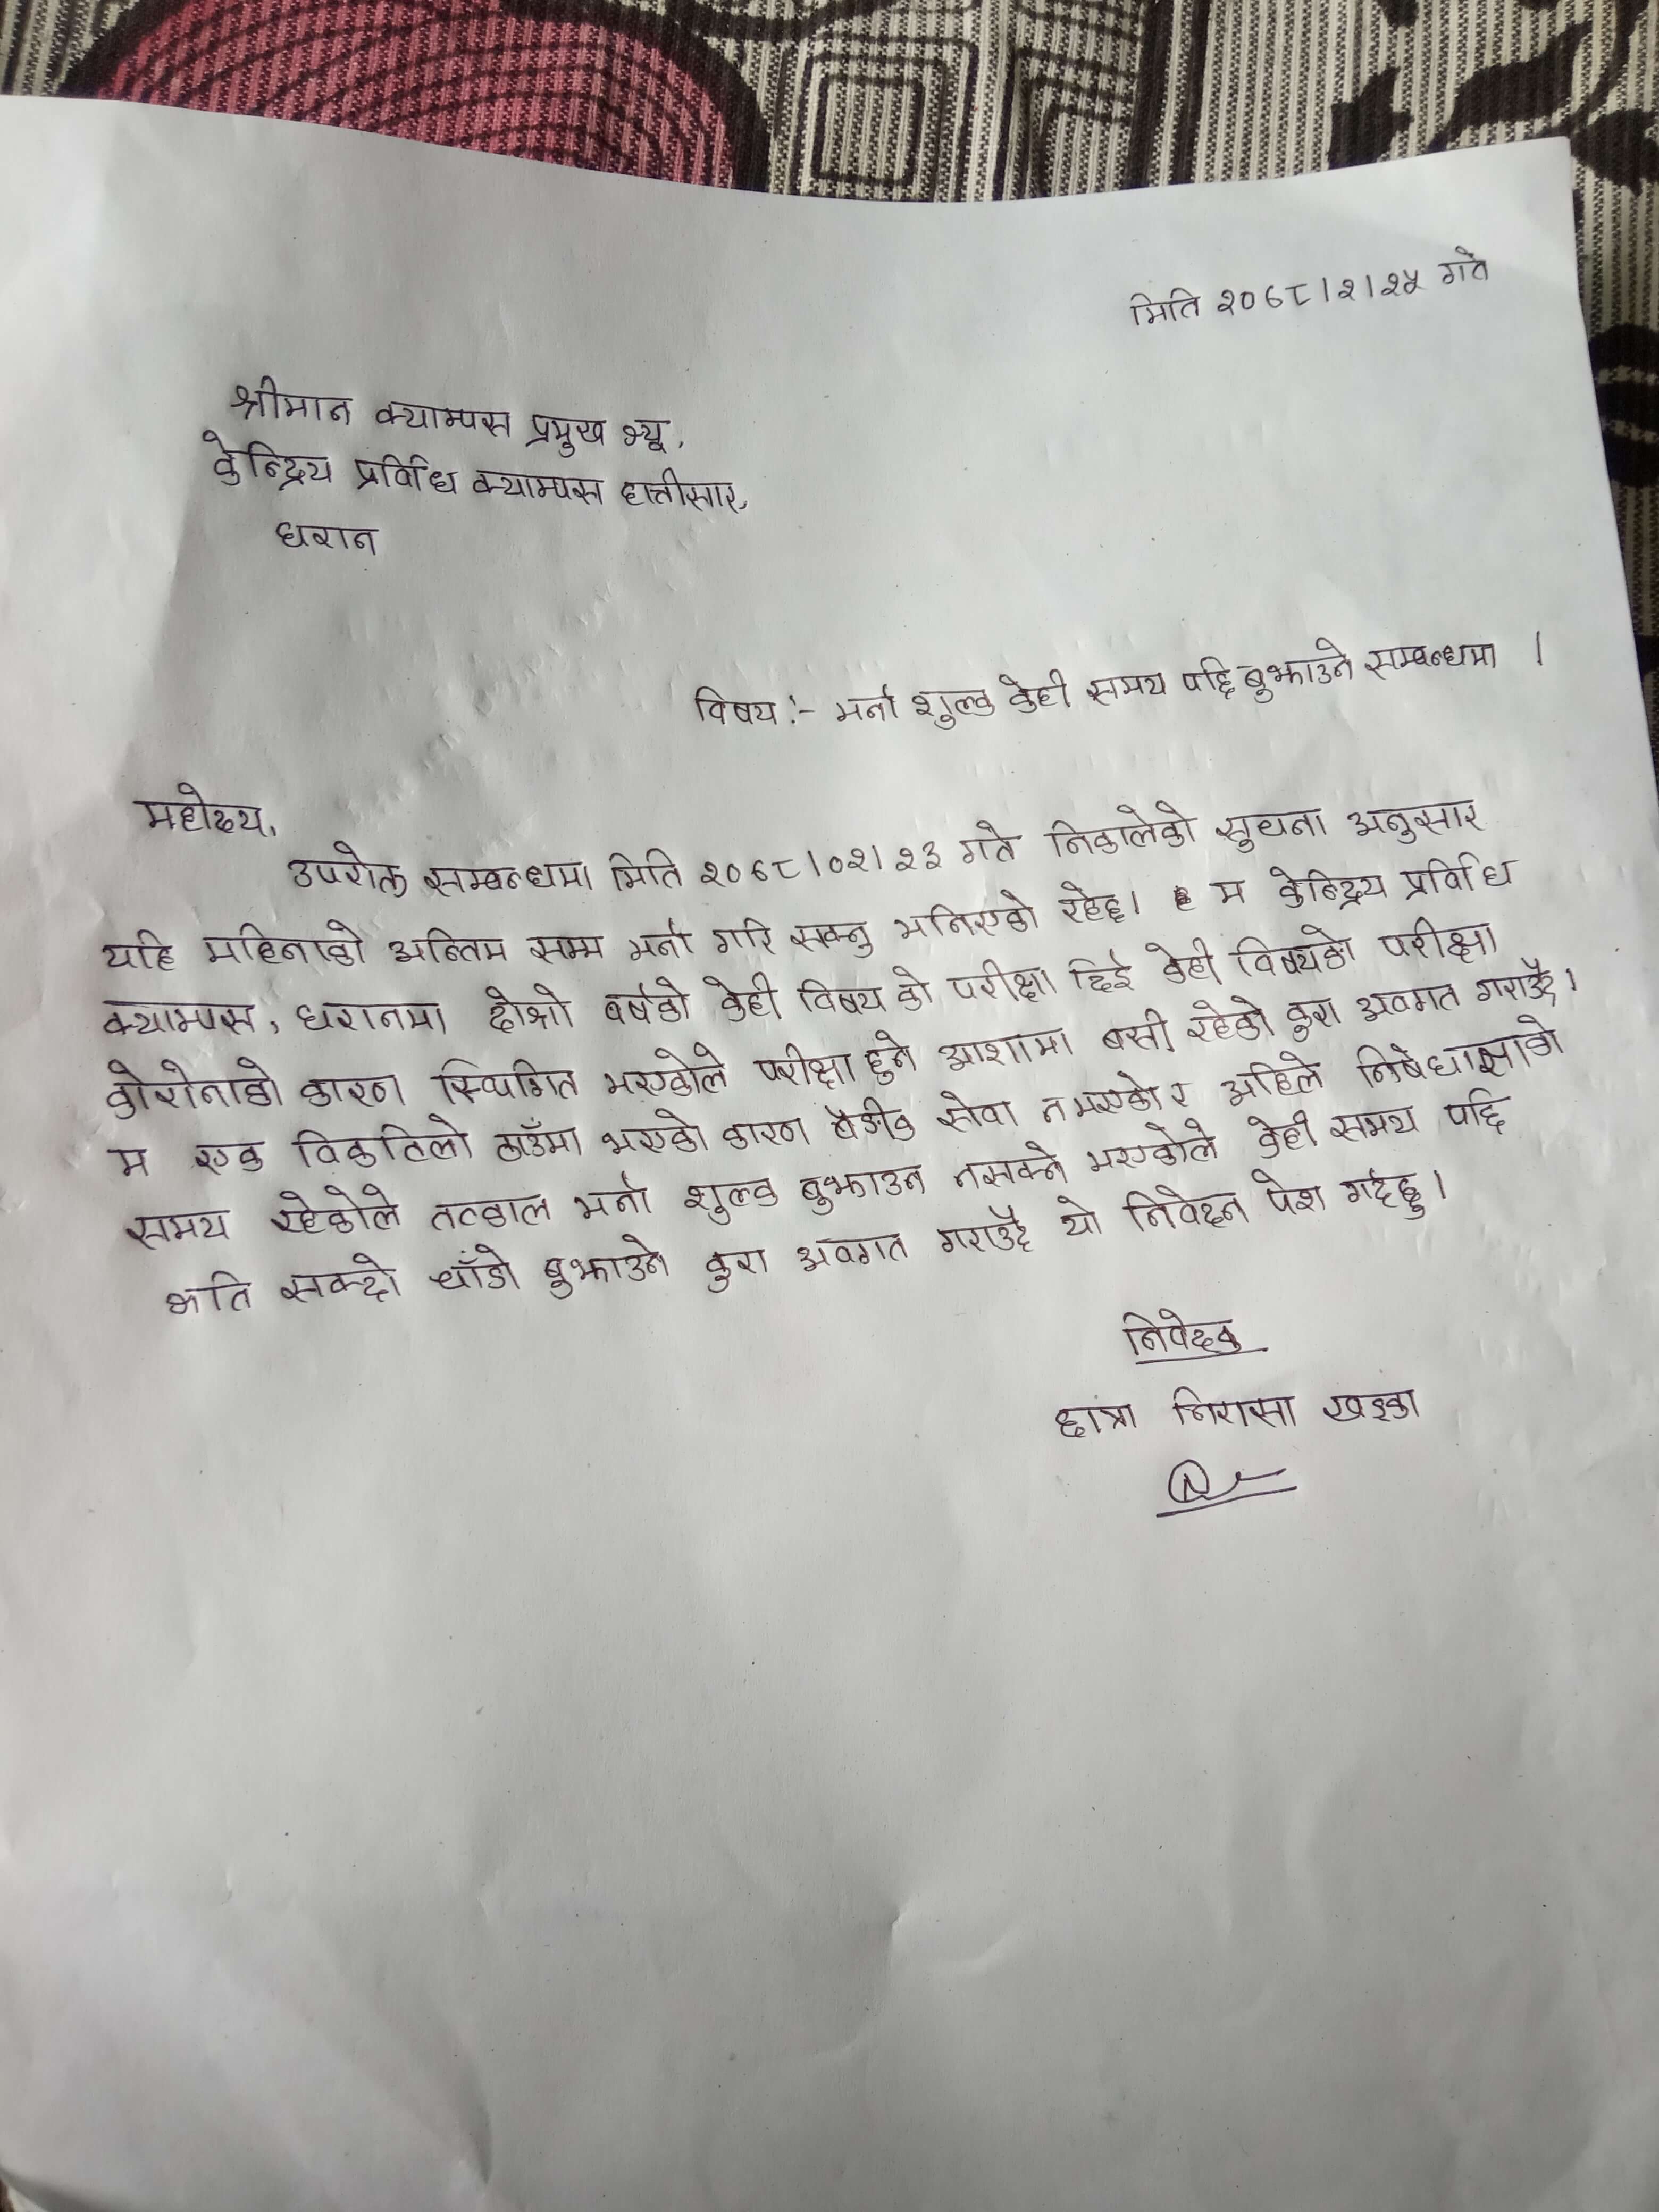 मिति २०७८।२।२५ गते
श्रीमान क्याम्पस प्रमुख ज्यू,
केन्द्रिय प्रविधि क्याम्पस हात्तीसार,
धरान
विषय:- भर्ना शुल्क केही समय पछि बुझाउने सम्बन्धमा ।
महोदय,
उपरोक्त सम्बन्धमा मिति २०७८।०२।२३ गते निकालेको सुचना अनुसार
यहि महिनाको अन्तिम सम्म भर्ना गरि सक्नु भनिएको रहेछ। म केन्द्रिय प्रविधि
क्याम्पस, धरानमा दोश्रो बर्षको केही विषय को परीक्षा दिई केही विषयको परीक्षा
कोरोनाको कारण स्थिगित भएकोले परीक्षा हुने आशामा बसी रहेको कुरा अवगत गराउँदै।
म एक विकटिलो ठाउँमा भएको कारण बैङ्कीक सेवा नभएको र अहिले निषेधाज्ञाको
समय रहेकोले तत्काल भर्ना शुल्क बुझाउन नसक्ने भएकोले केही समय पछि
भति सक्दो चाँडो बुझाउने कुरा अवगत गराउँदै यो निवेदन पेश गर्दछु।
निवेदक
छात्रा निरासा खड्का